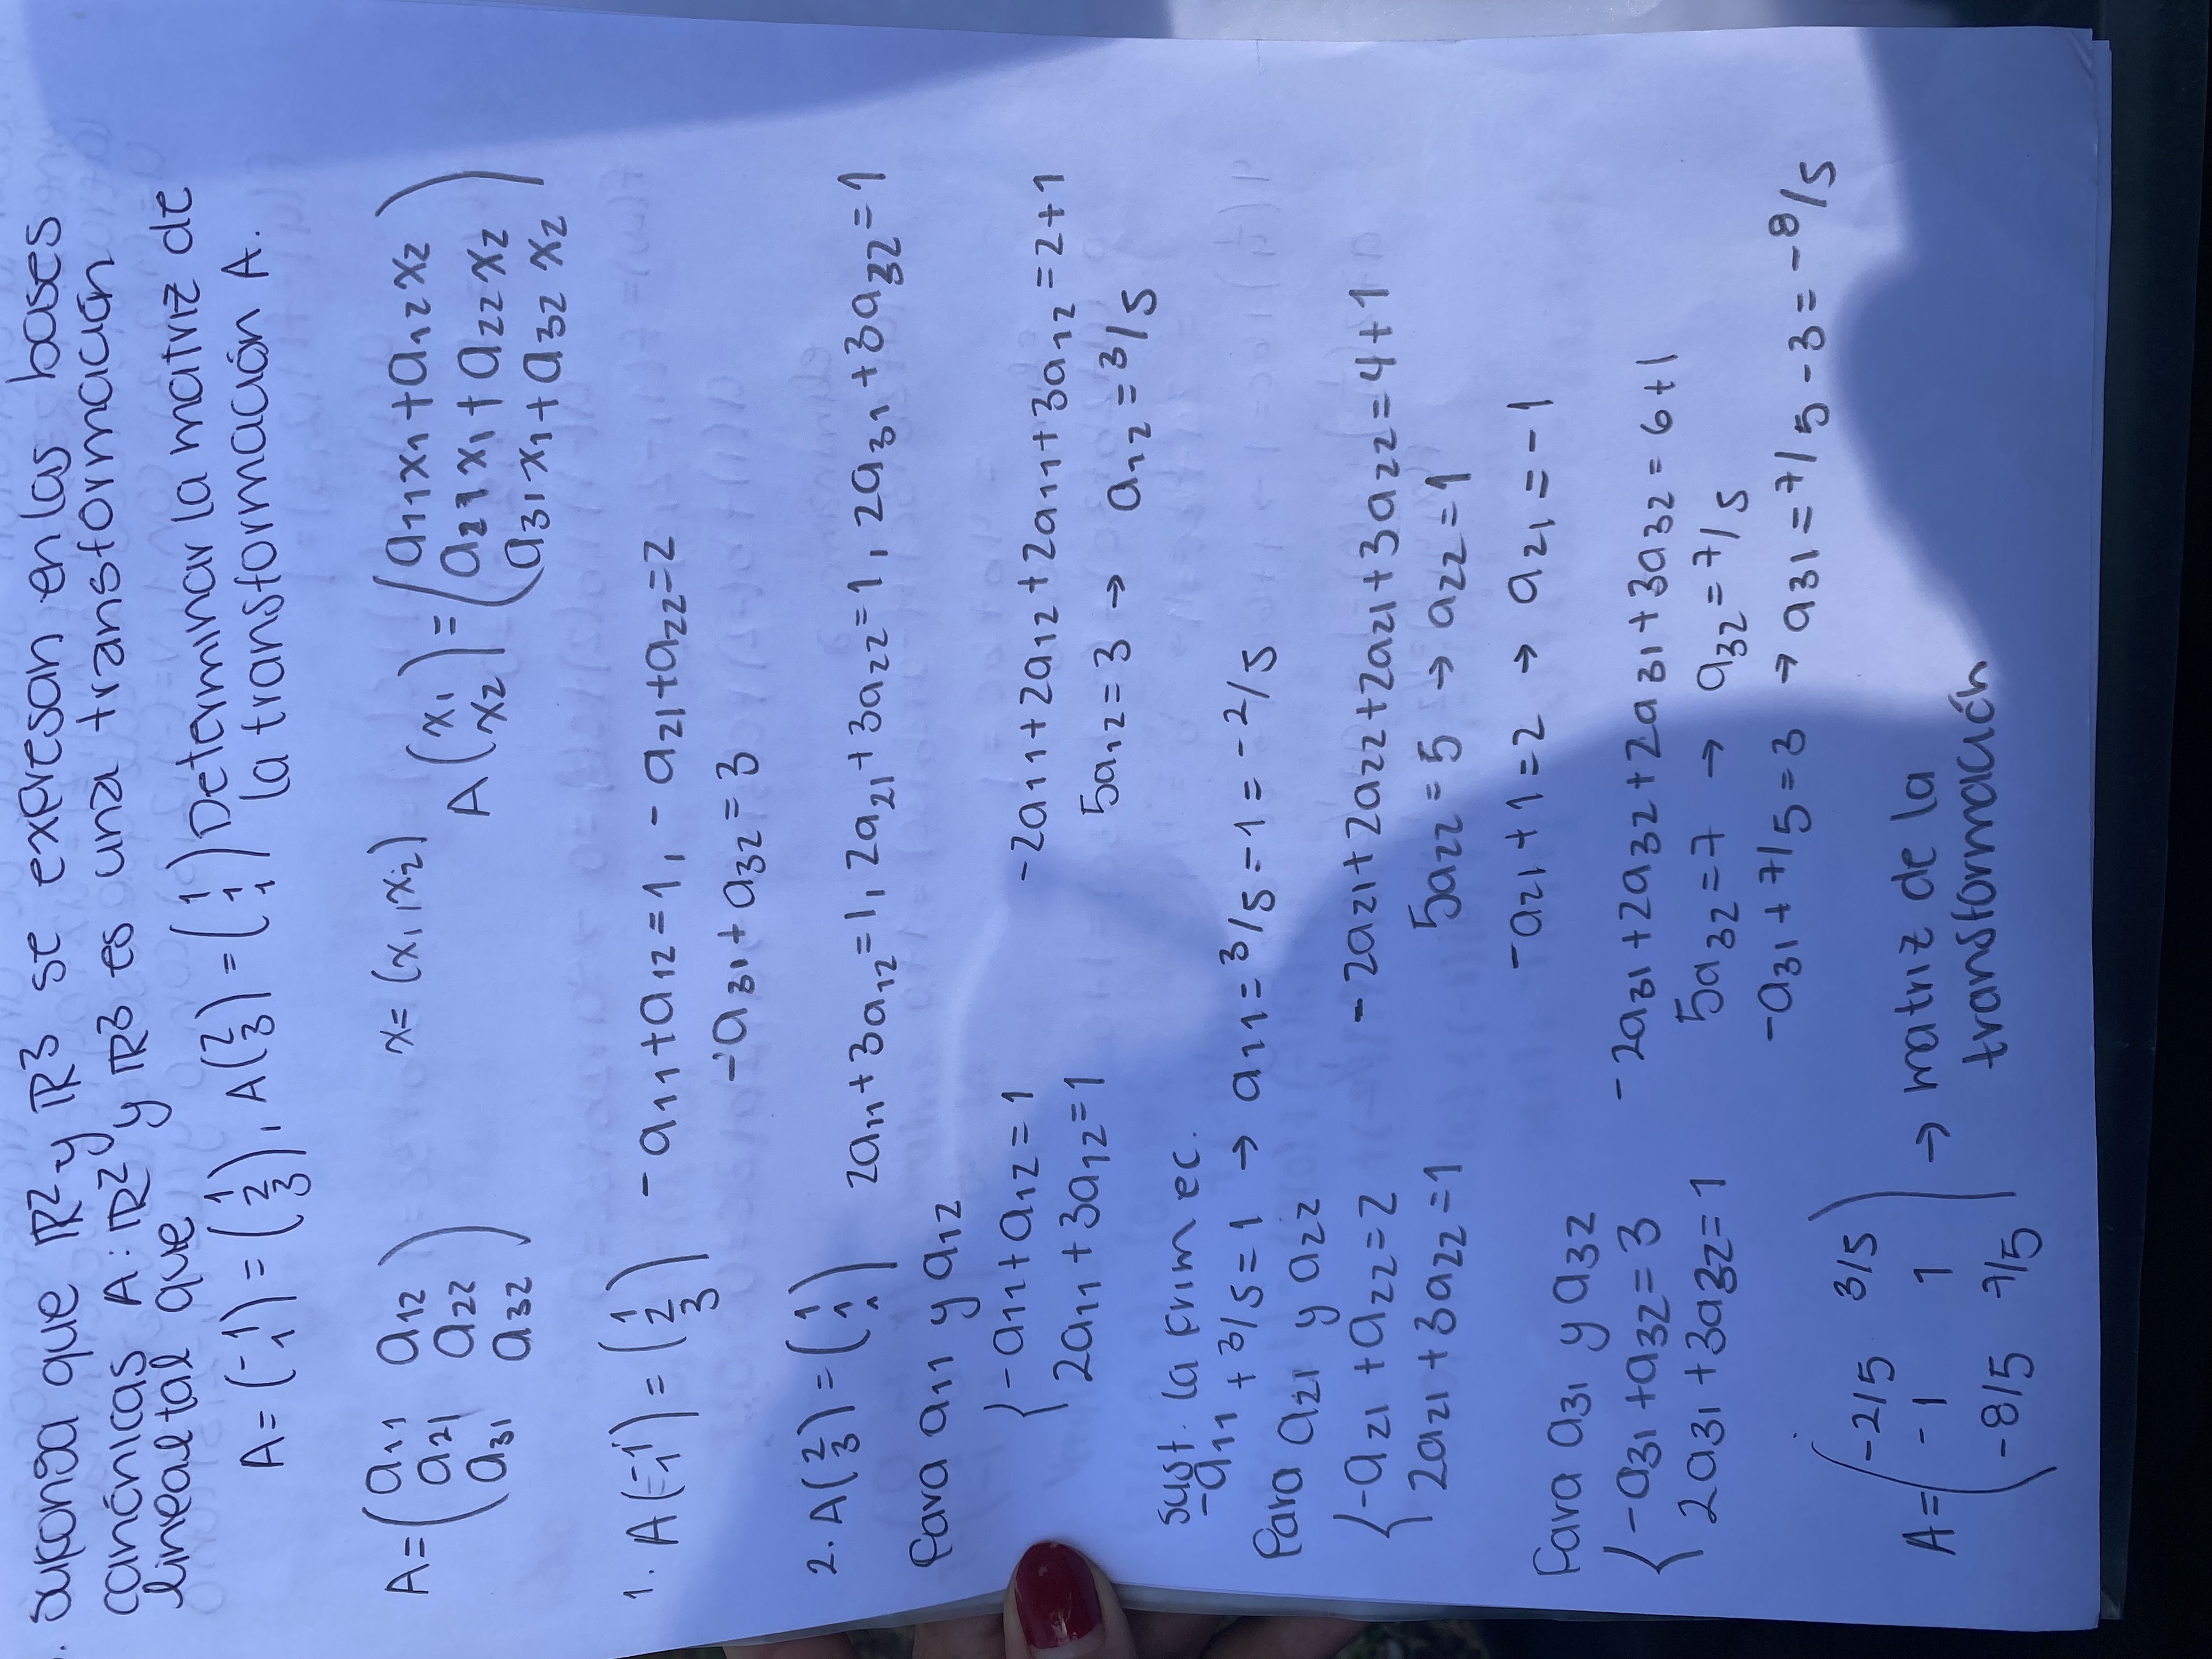 . Suponga que ℝ² y ℝ³ se expresan en las bases
canónicas A: ℝ² y ℝ³ es una transformación
lineal tal que
A = (-1 1) = (1 2 3), A(2 3) = (1 1 1) Determinar la matriz de
la transformación A.
A = (a11 a12
a21 a22
a31 a32)
x = (x1, x2)
A(x1 x2) = (a11x1 + a12x2
a21x1 + a22x2
a31x1 + a32x2)
1. A(-1 1) = (1 2 3) -a11 + a12 = 1, -a21 + a22 = 2
-a31 + a32 = 3
2. A(2 3) = (1 1 1) 2a11 + 3a12 = 1, 2a21 + 3a22 = 1, 2a31 + 3a32 = 1
Para a11 y a12
{ -a11 + a12 = 1
2a11 + 3a12 = 1
-2a11 + 2a12 + 2a11 + 3a12 = 2 + 1
5a12 = 3 → a12 = 3/5
Sust. la prim ec.
-a11 + 3/5 = 1 → a11 = 3/5 - 1 = -2/5
Para a21 y a22
{ -a21 + a22 = 2
2a21 + 3a22 = 1
-2a21 + 2a22 + 2a21 + 3a22 = 4 + 1
5a22 = 5 → a22 = 1
-a21 + 1 = 2 → a21 = -1
Para a31 y a32
{ -a31 + a32 = 3
2a31 + 3a32 = 1
-2a31 + 2a32 + 2a31 + 3a32 = 6 + 1
5a32 = 7 → a32 = 7/5
-a31 + 7/5 = 3 → a31 = 7/5 - 3 = -8/5
A = (-2/5 3/5
-1 1
-8/5 7/5)
→ matriz de la
transformación